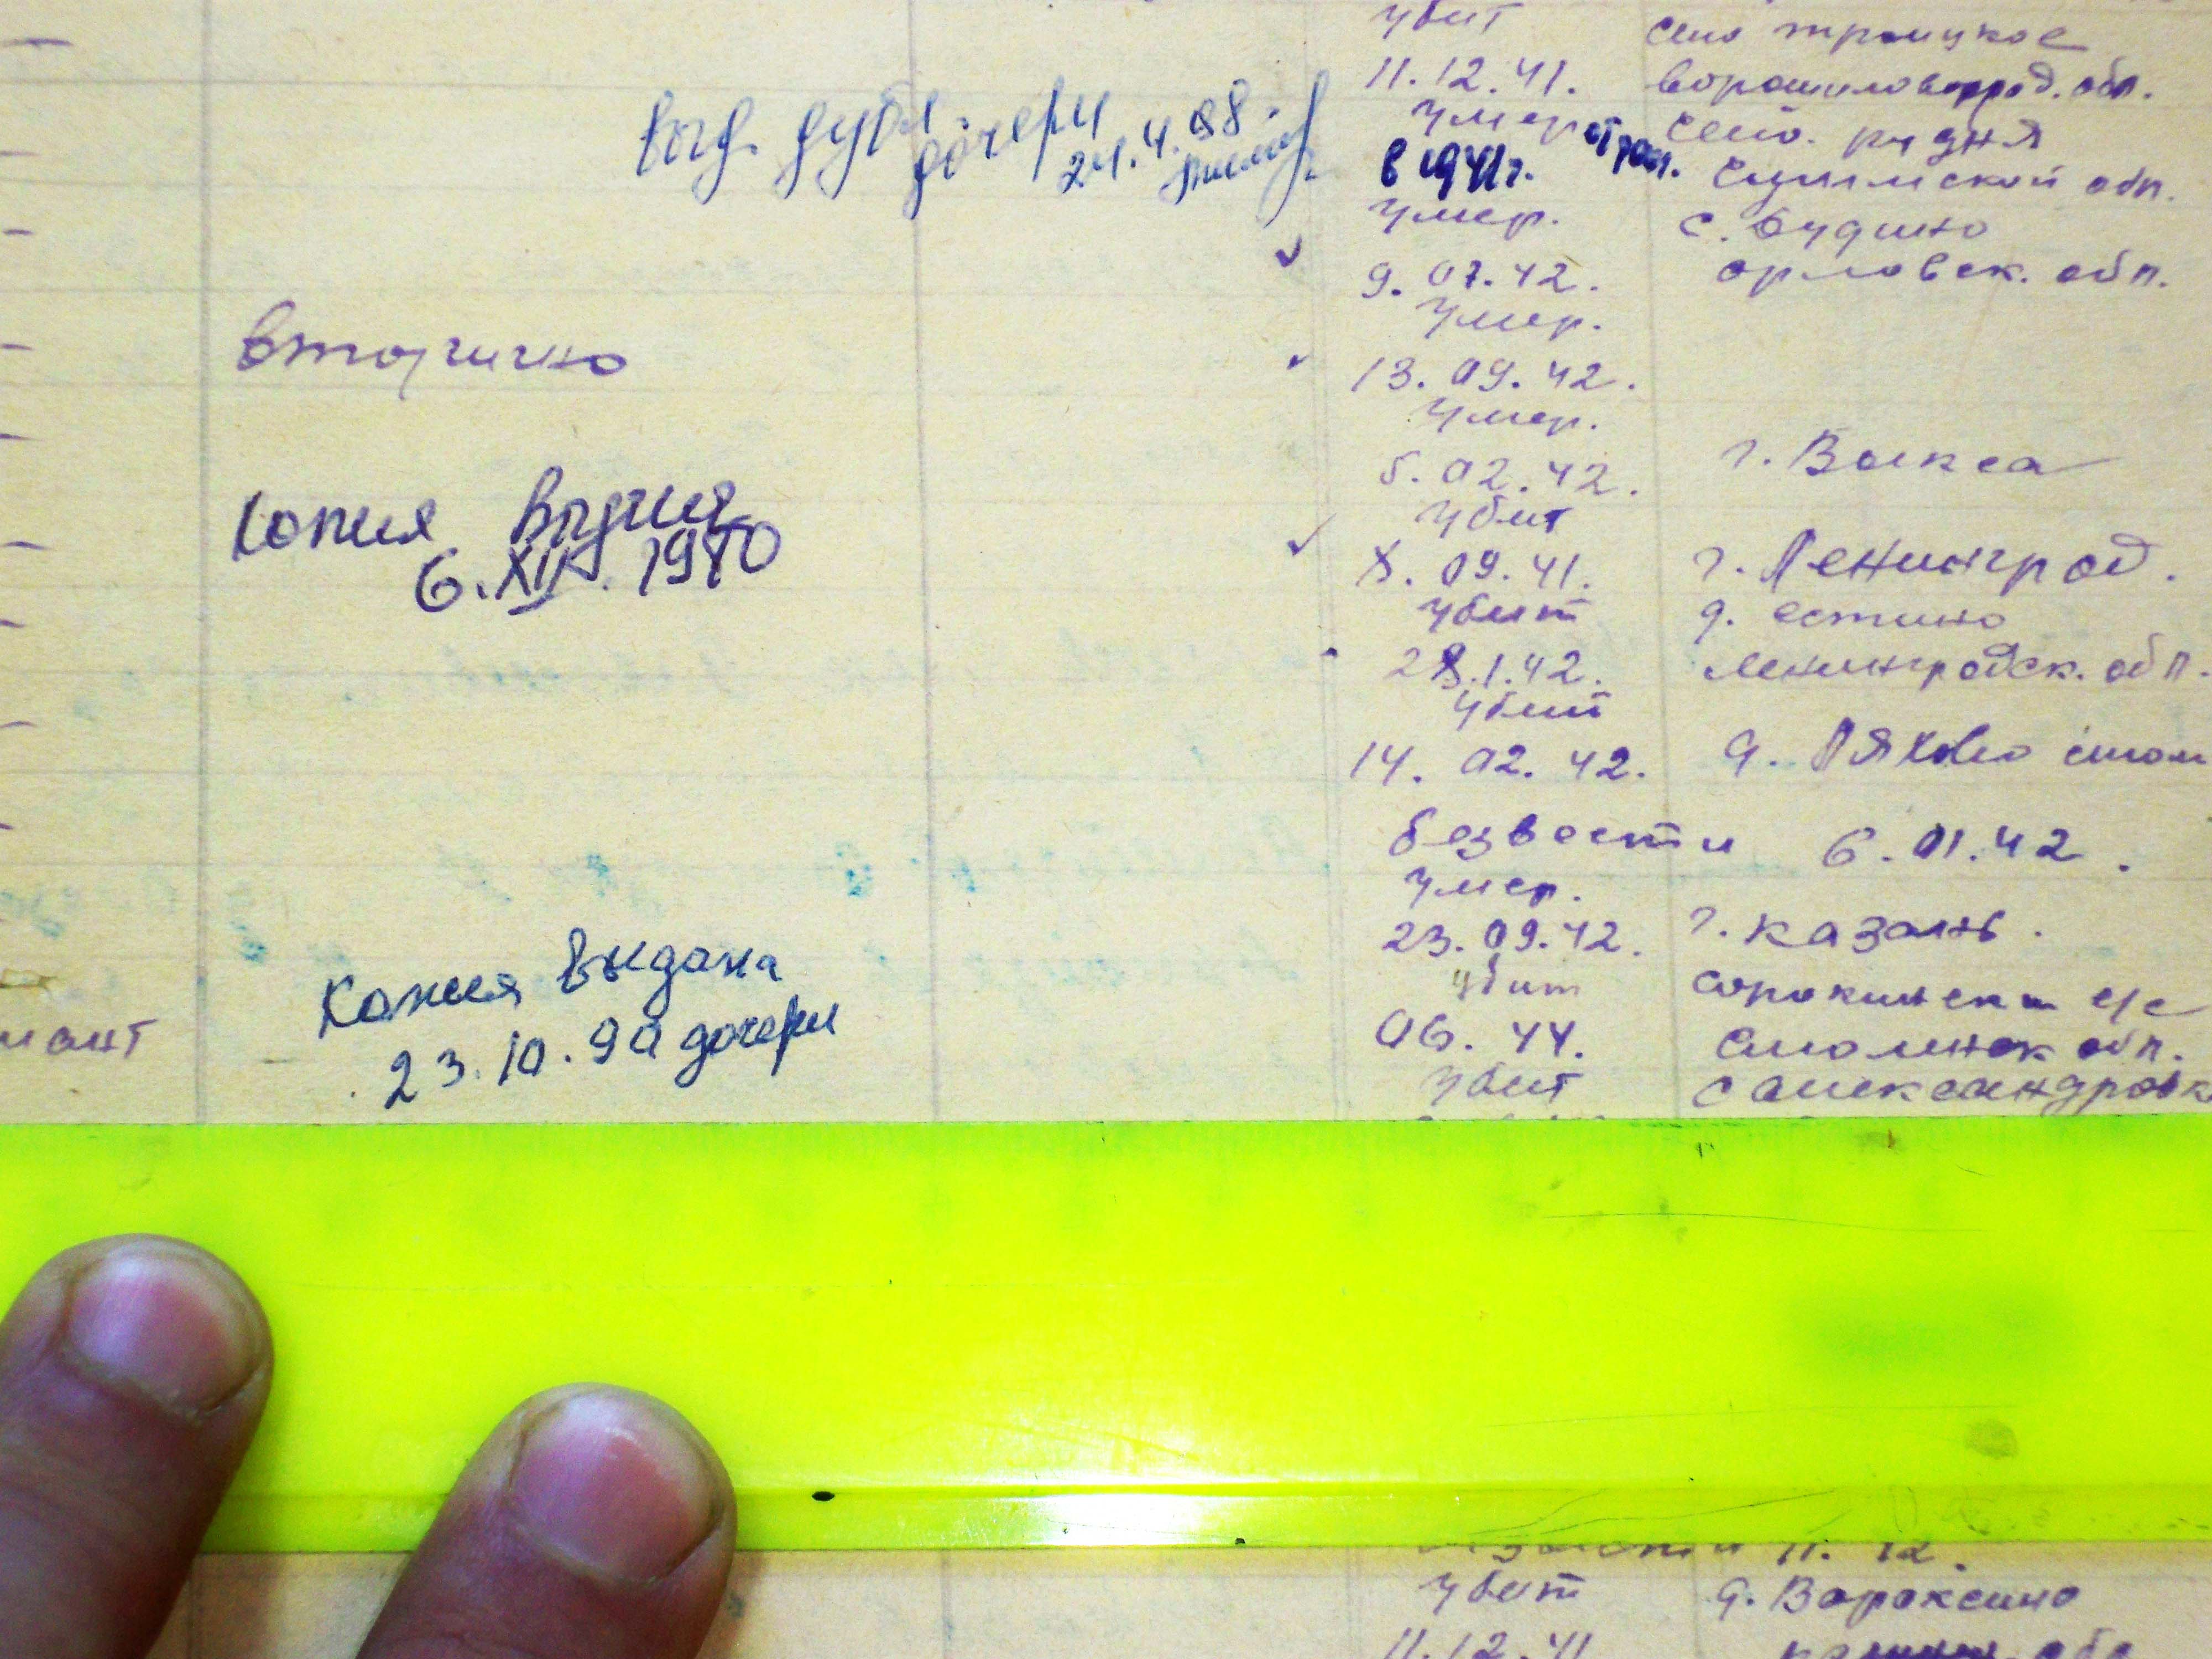 убит
село троицкое
11.12.41.
ворошиловоград. обл.
умер от ран.
село. рудня
в 1941г.
Сумской обл.
умер.
с. Будино
9. 07. 42.
орловск. обл.
умер.
13. 09. 42.
умер.
5. 02. 42.
г. Выкса
убит
8. 09. 41.
г. Ленинград.
убит
д. естино
28.1.42.
Ленинградск. обл.
убит
14. 02. 42.
д. Ляхово смол
безвести 6.01.42.
умер.
23. 09. 42.
г. казань.
убит
сорокинский с/с
06. 44.
Смоленск обл.
убит
с александровк
выд. дубл. дочери
24.4.88.
вторично
копия выдана
6. XII. 1980
Копия выдана
23.10.90 дочери
мант
безвести 11. 12.
убит
д. Вараксино
11.12.41
калинин. обл